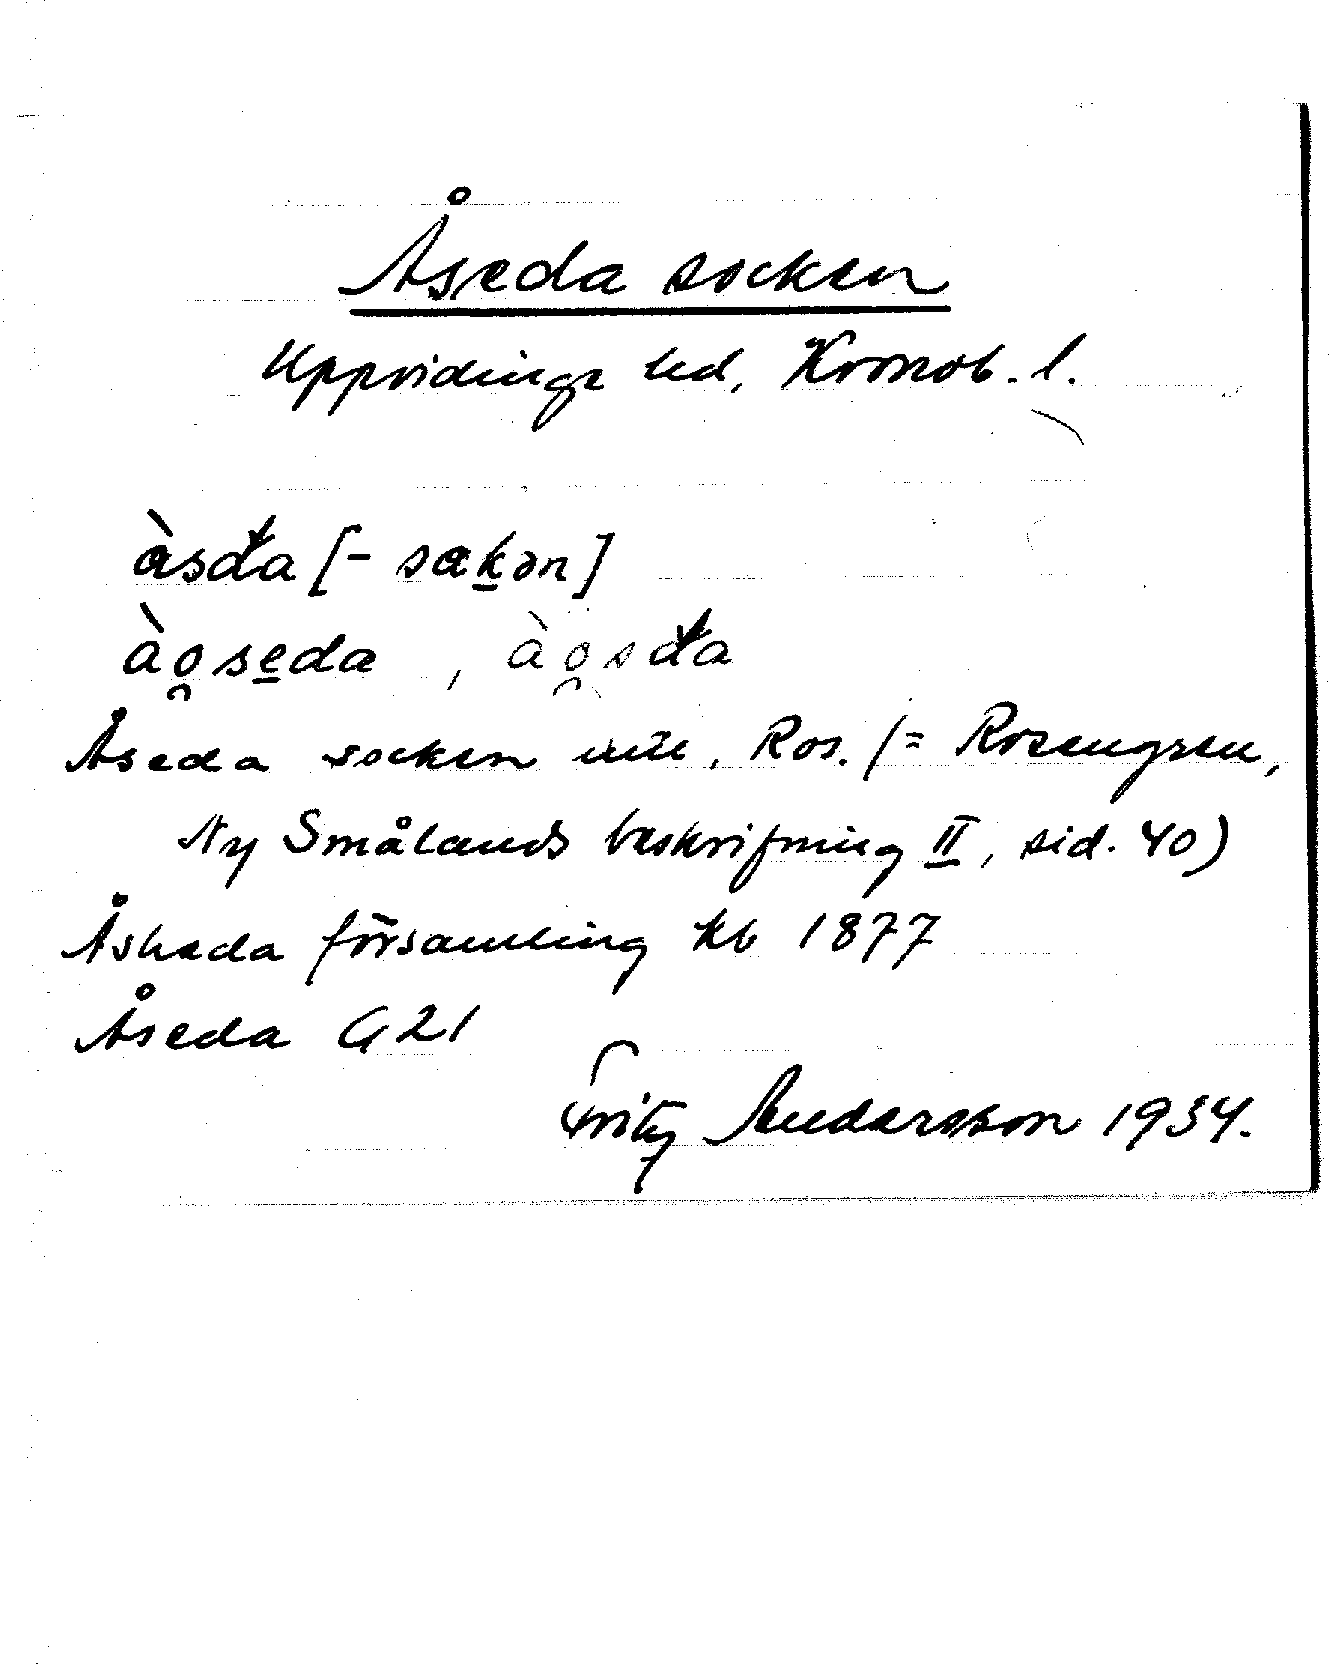 Åseda socken
Uppvidinge hd, Kronob. l.
àsđa [- sakən]
ào̯seda, ào̯sđa
Åseda socken Ros. (= Rosengren,
Ny Smålands beskrifning II, sid. 40)
Åsheda församling kb 1877
Åseda G21
Fritz Andersson 1934.